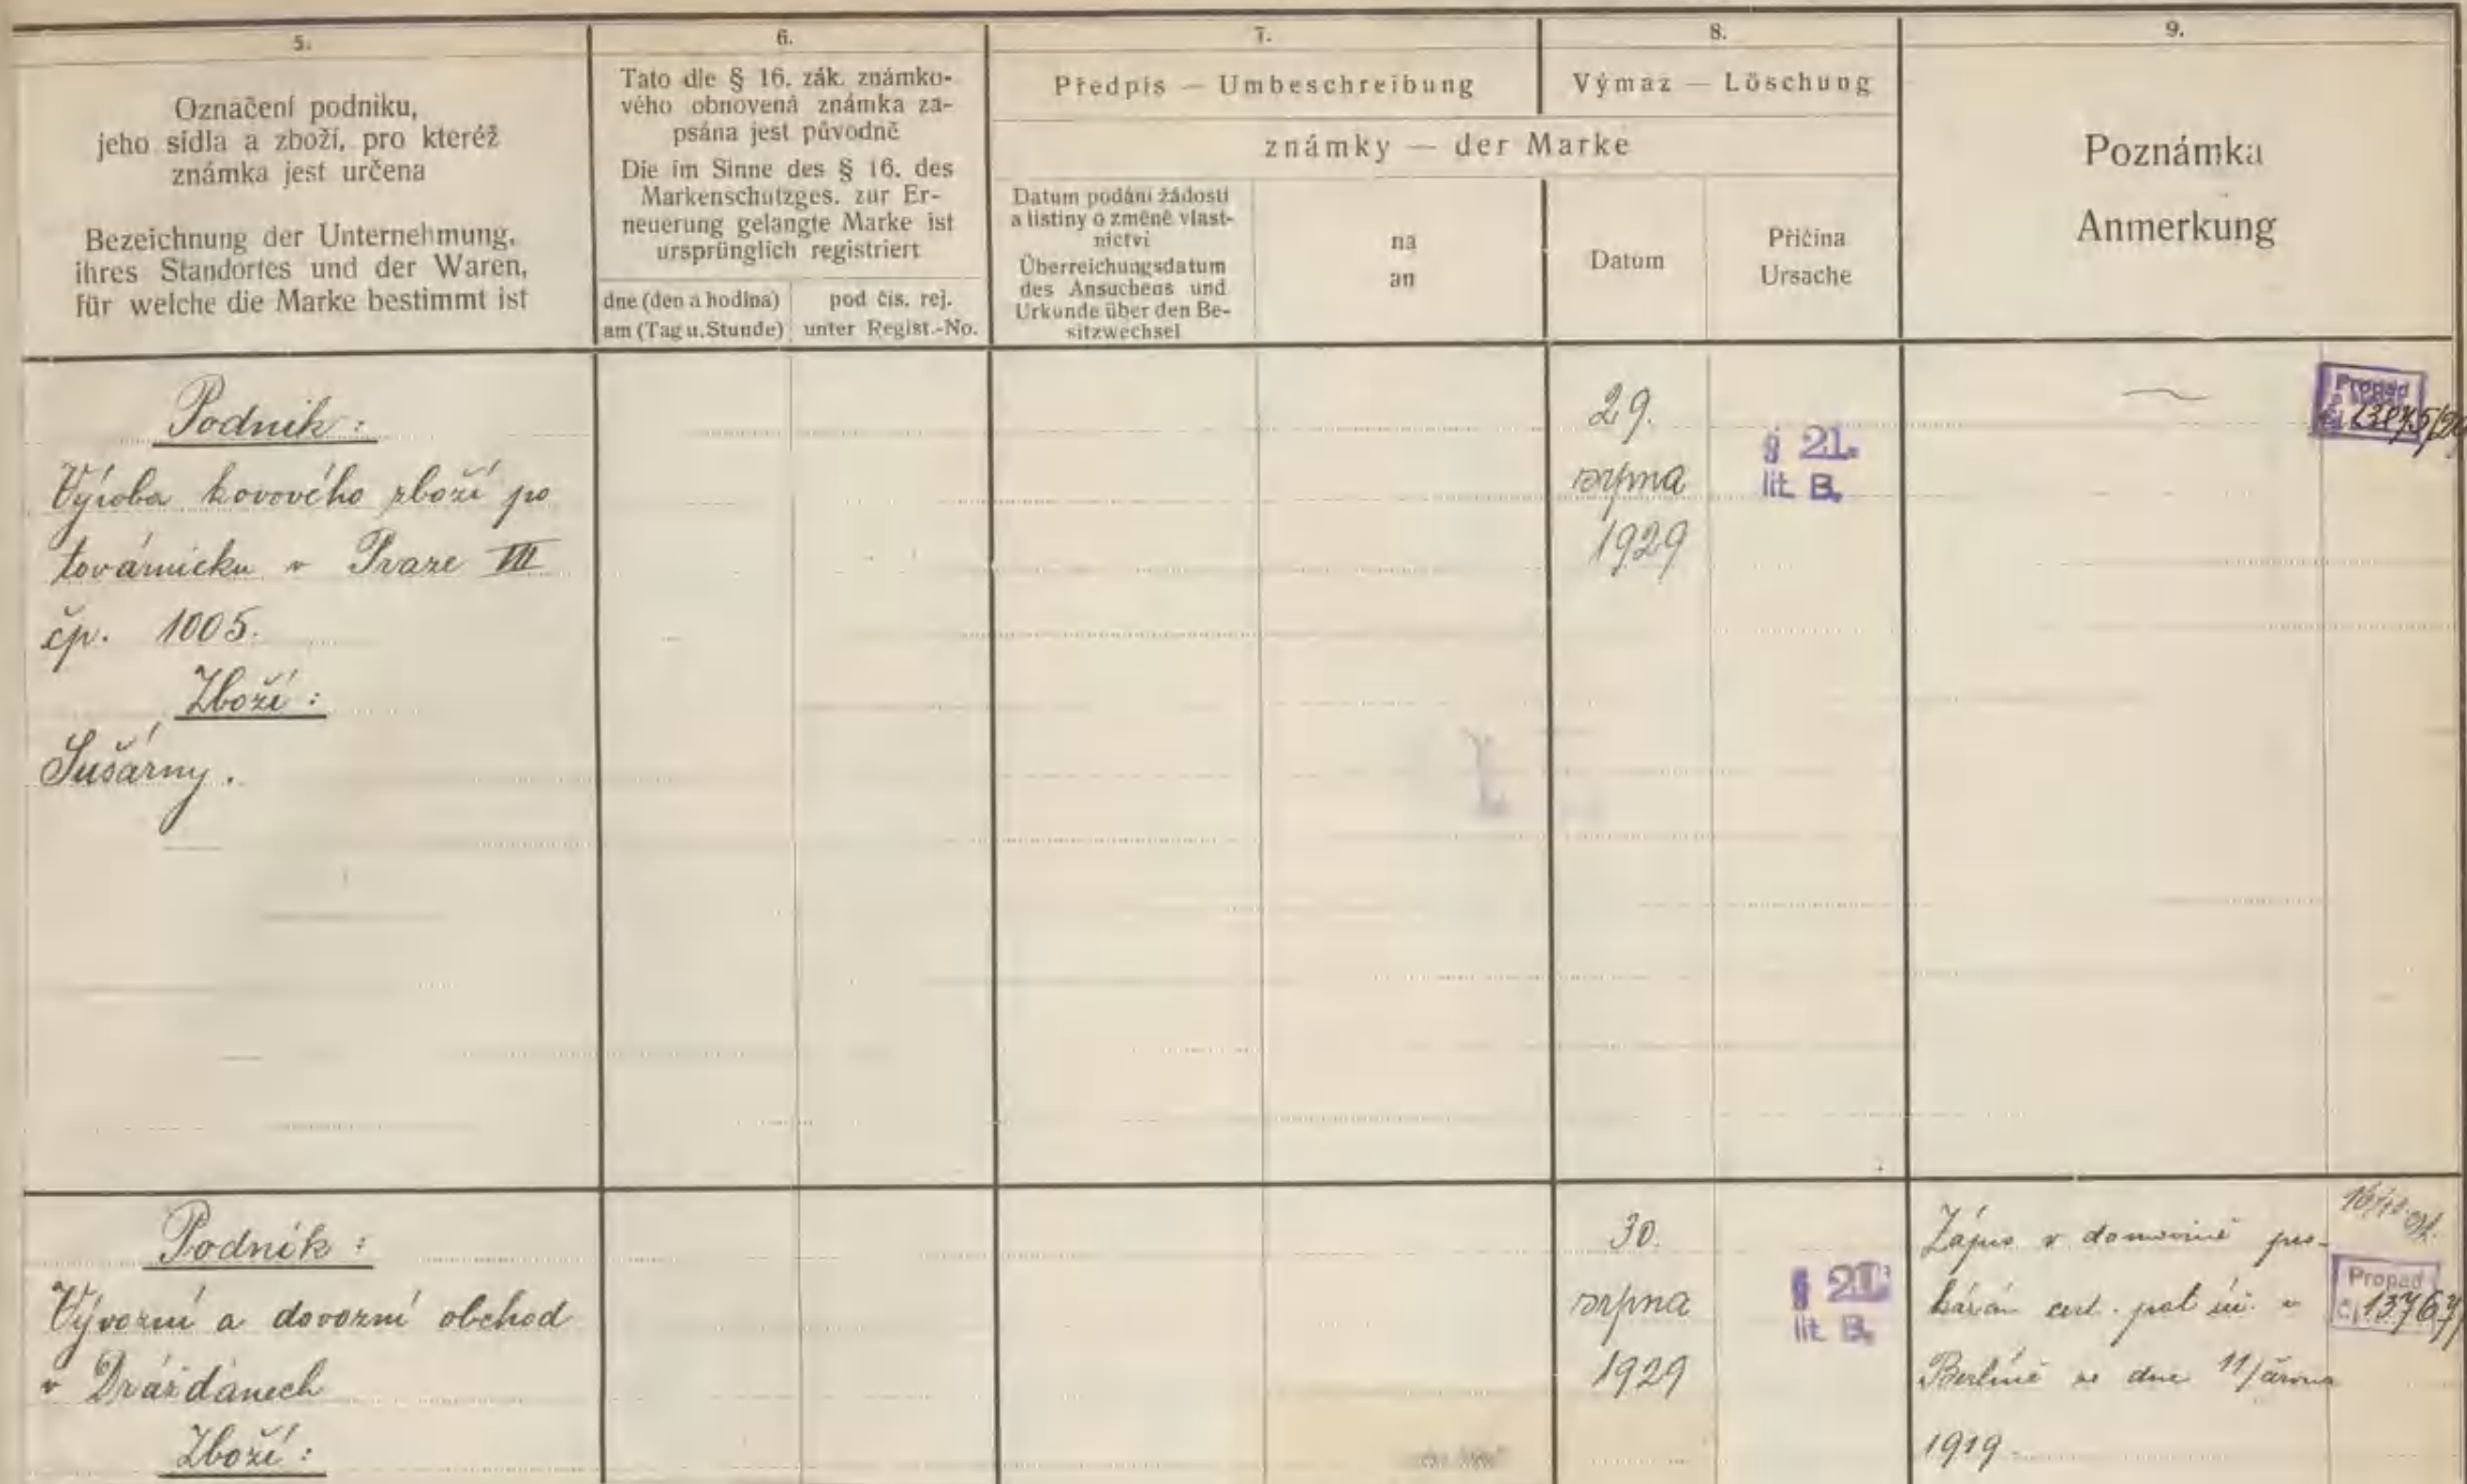 5.
Označení podniku,
jeho sídla a zboží, pro kteréž
známka jest určena
Bezeichnung der Unternehmung,
ihres Standortes und der Waren,
für welche die Marke bestimmt ist
6.
Tato dle § 16. zák. známko-
vého obnovená známka za-
psána jest původně
Die im Sinne des § 16. des
Markenschutzges. zur Er-
neuerung gelangte Marke ist
ursprünglich registriert
dne (den a hodina)
am (Tag u. Stunde)
pod čís. rej.
unter Regist.-No.
7.
Předpis — Umbeschreibung
8.
Výmaz — Löschung
známky — der Marke
Datum podání žádosti
a listiny o změně vlast-
nictví
Überreichungsdatum
des Ansuchens und
Urkunde über den Be-
sitzwechsel
na
an
Datum
Příčina
Ursache
9.
Poznámka
Anmerkung
Podnik:
Výroba kovového zboží po
továrnicku v Praze VII
čp. 1005.
Zboží:
Sušárny.
29.
srpna
1929
§ 21.
lit. B.
Propad
Podnik:
Vývozní a dovozní obchod
v Drážďanech
Zboží:
30.
srpna
1929
§ 21.
lit. B.
Zápis v domovině pro-
kázán cert. pat. úř. v
Berlíně ze dne 11/února
1919.
Propad
čj. 13767